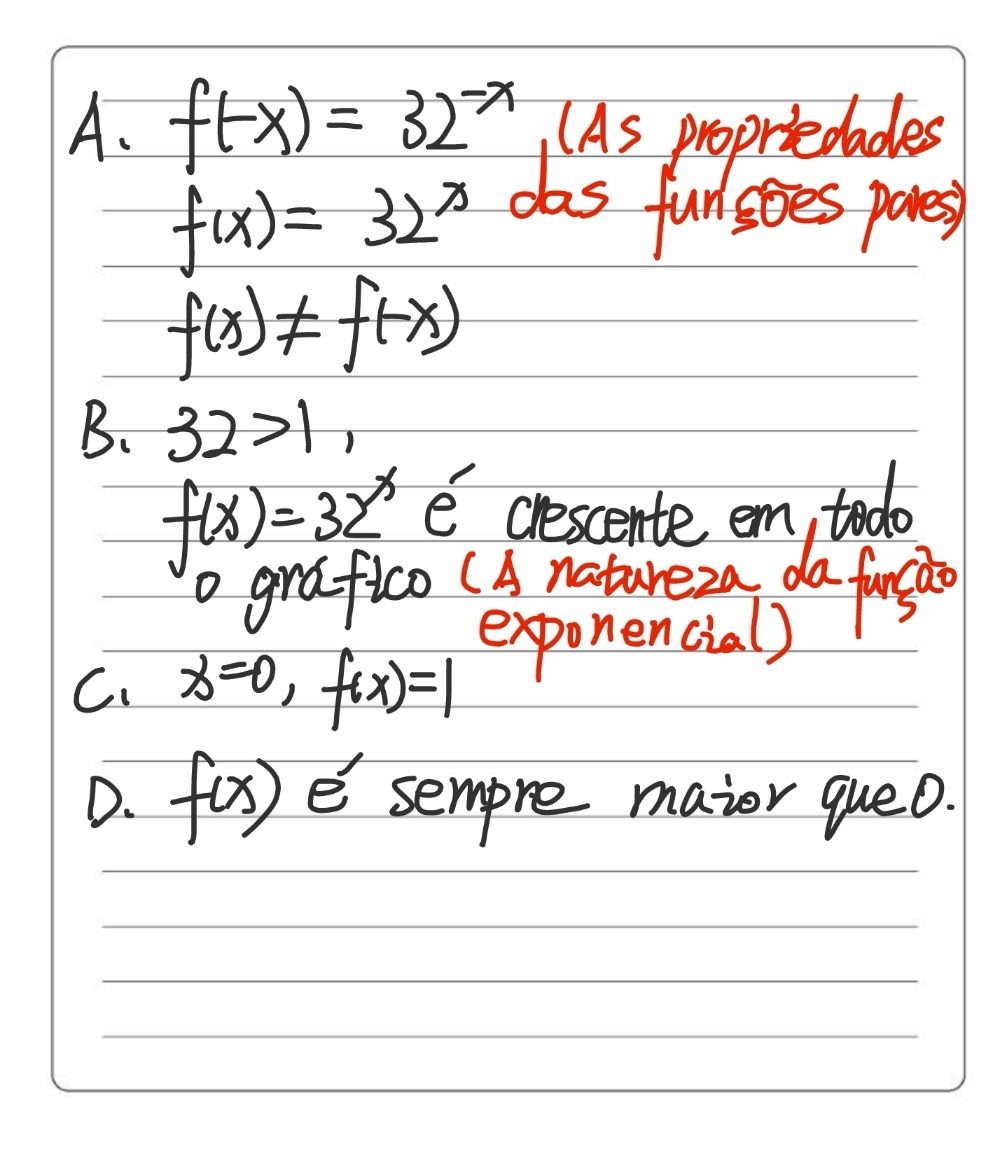 A. f(-x) = 32^-x (As propriedades
f(x) = 32^x das funções pares)
f(x) ≠ f(-x)
B. 32>1,
f(x)=32^x é crescente em todo
o gráfico (A natureza da função
exponencial)
C. x=0, f(x)=1
D. f(x) é sempre maior que 0.